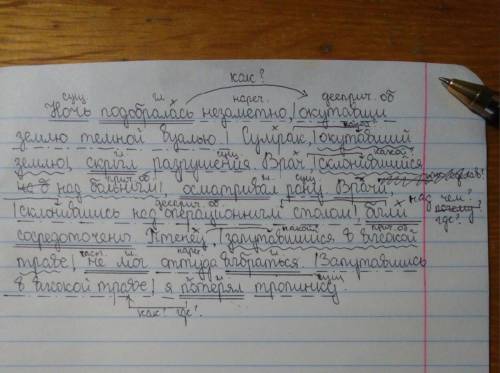 как?
сущ. гл. нареч. дееприч. об
Ночь подобралась незаметно, окутавши
землю темной вуалью. Сумрак, окутавший
какой?
землю, скрыл разрушения. Врач, склонившийся
гл. сущ. какой?
над больным, осматривал рану. Врачи,
прич. об гл. сущ. над чем?
склонившись над операционным столом, были
дееприч. об. где?
сосредоточены. Птенец, запутавшийся в высокой
какой? прич. об
траве, не мог оттуда выбраться. Запутавшись
част. нареч. гл.
в высокой траве, я потерял тропинку.
гл. сущ.
как? где?